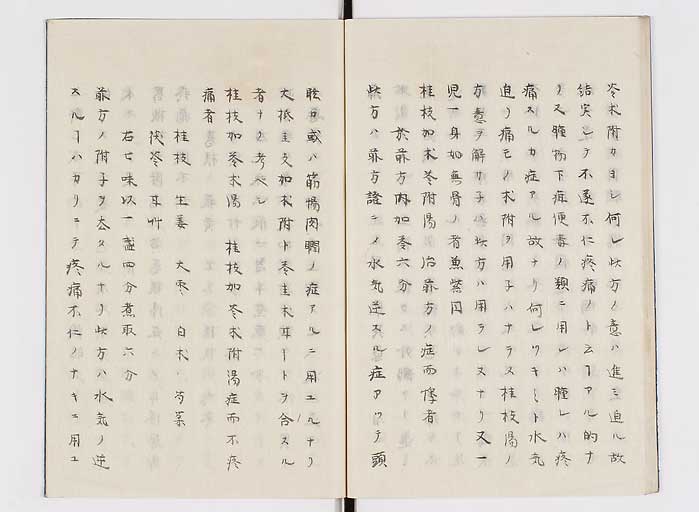 苓朮附カヨシ何レ此方ノ意ハ進ミ迫ル故
結実シテ不遂不仁疼痛ノトムーアル的ナ
リ又腫物下疳便毒ノ類ニ用レハ腫レハ疼
痛スルカ症アル故ナリ何レワキート水気
迫リ痛モノ朮附ヲ用子ハナラス桂枝湯ノ
方意ヲ解カ子ハ此方ハ用ラレヌナリ又一
児一身如無骨ノ者兼紫円
桂枝加朮苓附湯治前方ノ症而悸者
於前方内加苓六分
此方ハ前方證ニノ水気逆スル症アツテ頭
眩カ或ハ筋惕肉瞤ノ症アルニ用ユルナリ
大抵主支加朮附ト苓圭朮甘ートヲ合スル
者ナリ考ヘシ
桂枝加苓朮湯 桂枝加苓朮附湯症而不疼
痛者
桂枝 生姜 大棗 白朮 芍薬
茯苓 甘艸
右七味以一盞四分煮取六分
前方ノ附子ヲ去タルナリ此方ハ水気ノ逆
スルーハカリニテ疼痛不仁ノナキニ用ユ